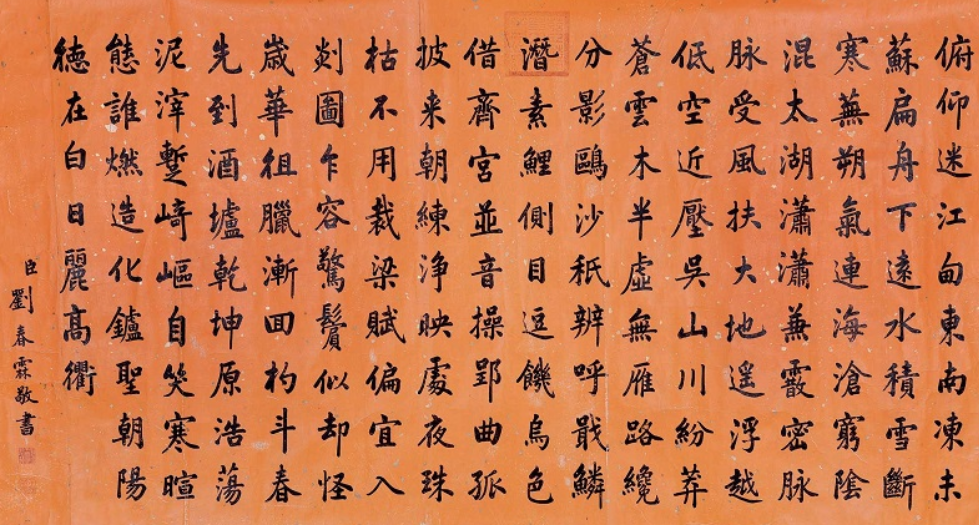 俯仰迷江甸東南凍未
蘇扁舟下遠水積雪斷
寒蕪朔氣連海滄窮陰
混太湖瀟瀟兼霰密脉
脉受風扶大地遥浮越
低空近壓吳山川紛莽
蒼雲木半虛無雁路纔
分影鷗沙秖辨呼戢鱗
潛素鯉側目逗饑烏色
借齊宮並音操郢曲孤
披来朝練净映處夜珠
枯不用裁梁賦偏宜入
剡圖乍容驚鬢似却怪
歲華徂臘漸囬杓斗春
先到酒壚乾坤原浩蕩
泥滓蹔崎嶇自笑寒暄
態誰燃造化鑪聖朝陽
徳在白日麗高衢
臣劉春霖敬書